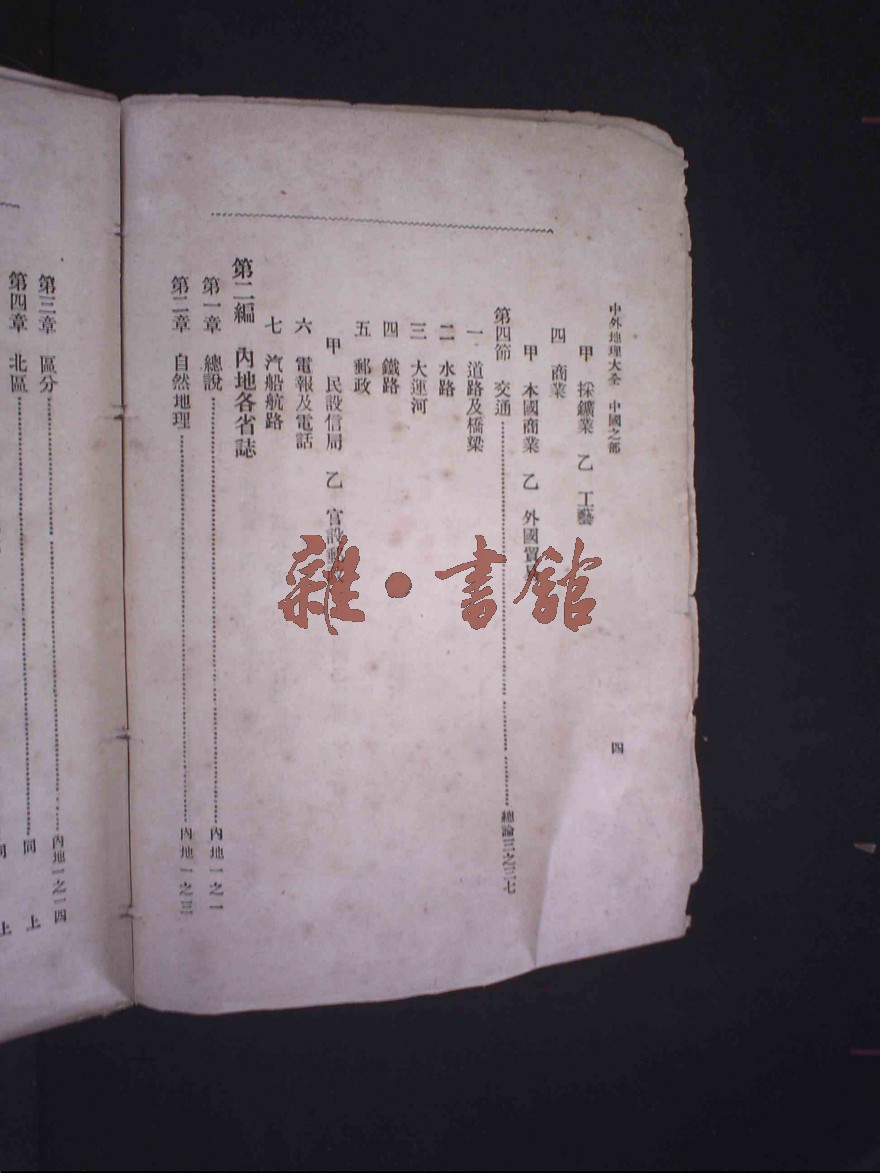 中外地理大全　中國之部
四
甲　採鑛業　乙　工藝
四　商業
甲　本國商業　乙　外國貿
第四節　交通……總論三之三七
一　道路及橋梁
二　水路
三　大運河
四　鐵路
五　郵政
甲　民設信局　乙　官設郵
六　電報及電話
七　汽船航路
第二編　內地各省誌
第一章　總說……內地一之一
第二章　自然地理……內地一之三
第三章　區分……內地一之一四
第四章　北區……同上
雜・書館